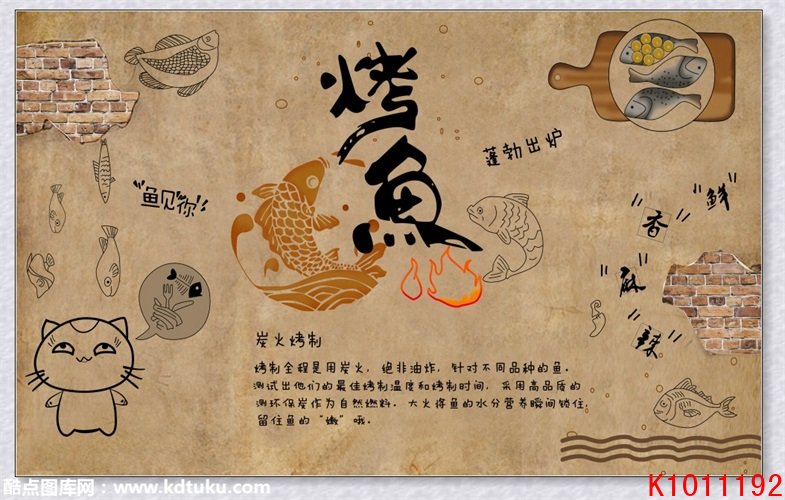 烤魚
蓬勃出炉
"鱼见你"
"鲜"
"香"
"麻"
"辣"
炭火烤制
烤制全程是用炭火，绝非油炸，针对不同品种的鱼。
测试出他们的最佳烤制温度和烤制时间，采用高品质的
测环保炭作为自然燃料，大火将鱼的水分营养瞬间锁住，
留住鱼的“嫩”哦。
酷点图库网：www.kdtuku.com
K1011192